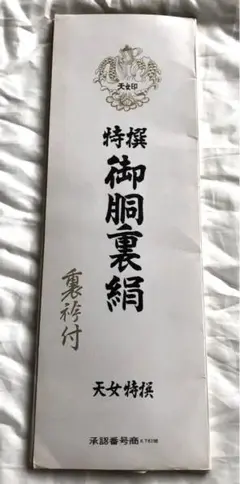 天女印
特撰
御胴裏絹
裏衿付
天女特撰
承認番号商